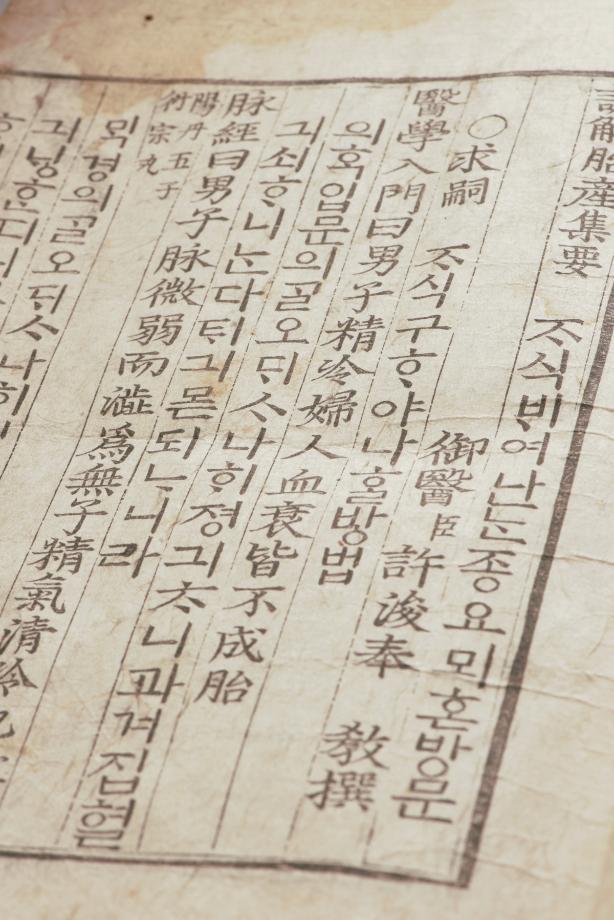 諺解胎産集要 ᄌᆞ식ᄇᆡ여난ᄂᆞᆫ죵요뫼혼방문
御醫臣許浚奉 敎撰
○求嗣 ᄌᆞ식구ᄒᆞ야나흘방법
醫學入門曰男子精冷婦人血衰皆不成胎
의혹입문의ᄀᆞᆯ오ᄃᆡᄉᆞ나ᄒᆡ졍긔ᄎᆞ니과겨집혈
긔쇠ᄒᆞ니ᄂᆞᆫ다ᄐᆡ긔몯되ᄂᆞ니라
脉經曰男子脉微弱而澁爲無子精氣清冷也
陽丹五子
衍宗丸
ᄆᆡᆨ경의ᄀᆞᆯ오ᄃᆡᄉᆞ나ᄒᆡ
긔닝ᄒᆞᆫ디